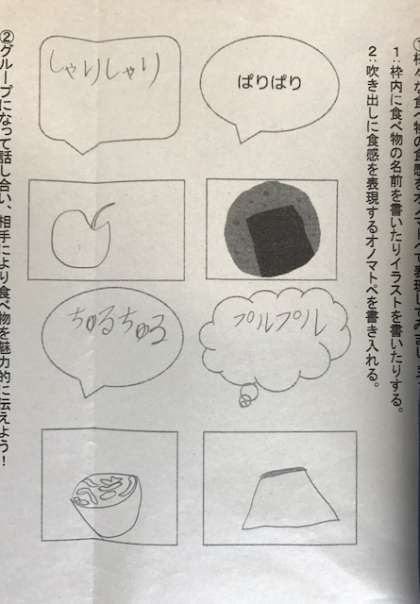 々な食べ物の食感をオノマトペで表現してみましょう
1：枠内に食べ物の名前を書いたりイラストを書いたりする。
2：吹き出しに食感を表現するオノマトペを書き入れる。
ぱりぱり
しゃりしゃり
プルプル
ちゅるちゅる
②グループになって話し合い、相手により食べ物を魅力的に伝えよう！